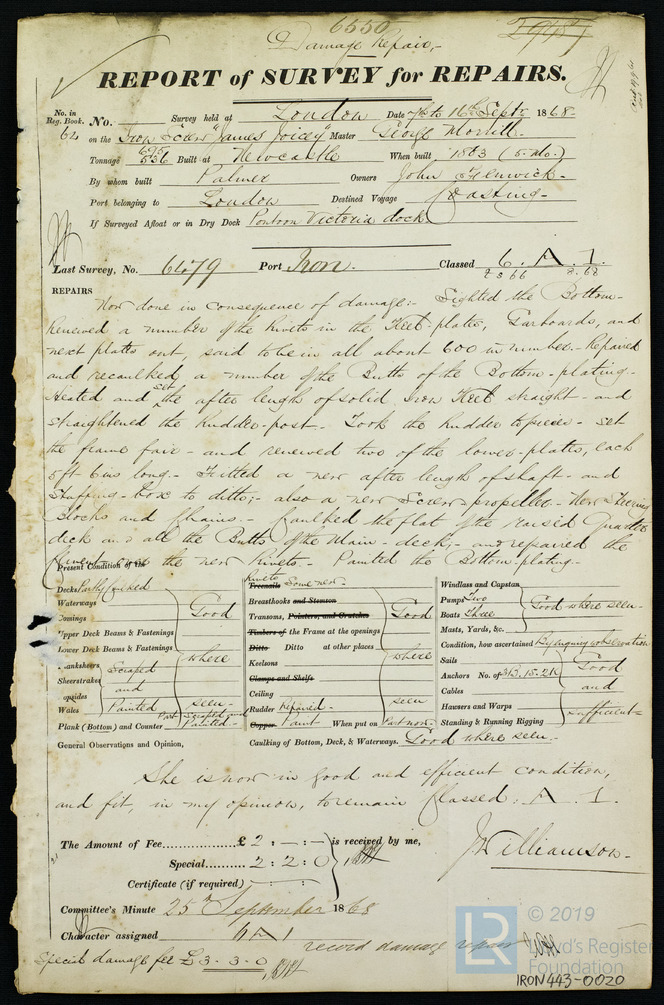 6550
Damage Repair,-
REPORT of SURVEY for REPAIRS.
No. in Reg. Book. No. Survey held at London Date 7th to 16th Septr. 1868.
62 on the Iron Screw "James Joicey" Master George
Tonnage 695 536 Built at Newcastle When built 1863 (5 Mo.)
By whom built Palmer Owners John Fenwick.
Port belonging to London Destined Voyage Coasting-
If Surveyed Afloat or in Dry Dock Pontoon Victoria dock
Last Survey, No. 6479 Port Iron. Classed 6. A. 1.
2 3 66 8.68
REPAIRS
Now done in consequence of damage:- Sighted the Bottom-
Renewed a number of the Rivets in the Keel-plate, Garboards, and
next plates out, said to be in all about 600 in number. Repaired
and recaulked a number of the Butts of the Bottom-plating.
Heated and set the after length of solid iron Keel straight- and
straightened the Rudder-post- Took the rudder to pieces- set
the frame fair- and renewed two of the lower-plates, each
5ft 6ins long.- Fitted a new after length of shaft- and
Stuffing-box to ditto;- also a new Screw-propeller- New Steering
Blocks and Chains.- Caulked the flat of the raised Quarter
deck and all the Butts of the Main-deck;- and repaired the
Cement over the new Rivets.- Painted the Bottom-plating-
Present Condition of the
Decks Partly Caulked
Waterways
Comings
Upper Deck Beams & Fastenings
Lower Deck Beams & Fastenings
Planksheers Scraped
Sheerstrakes and
Topsides
Wales Painted
Good where seen-
Plank (Bottom) and Counter Part scraped and Painted-
rivets
Treenails Some new-
Breasthooks and Stemson
Transoms, Pointers, and Crutches
Timbers of the Frame at the openings
Ditto Ditto at other places
Keelsons
Clamps and Shelfs
Ceiling
Rudder Repaired-
Good where seen
Copper Paint When put on Part now.
Caulking of Bottom, Deck, & Waterways. Good where seen-
Windlass and Capstan
Pumps Two
Boats Three
Masts, Yards, &c.
Good where seen-
Condition, how ascertained By inquiry & observation
Sails
Anchors No. of 3B, 1S. 2K
Cables
Hawsers and Warps
Standing & Running Rigging
Good and sufficient-
General Observations and Opinion,
She is now in good and efficient condition,
and fit, in my opinion, to remain Classed: A. 1.
The Amount of Fee £ 2 : - : - is received by me,
Special 2 : 2 : 0
Certificate (if required)
J Williamson-
Committee's Minute 25th September 1868
Character assigned 6 A 1
record damage repair
Special damage fee £3-3-0
© 2019
LR
Lloyd's Register
Foundation
IRON443-0020